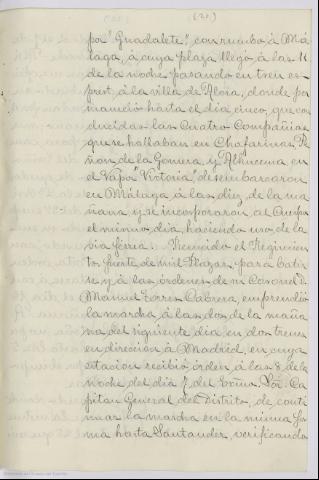 (20)
por "Guadalete", con rumbo á Má-
laga, á cuya plaza llegó á las 11
de la noche pasando en tren es-
prest á la villa de Alora, donde per
maneció hasta el dia cinco, que con
ducidas las Cuatro Compañias
que se hallaban en Chafarinas, Pe
ñon de la Gomera y Alhucema en
el Vapor "Victoria" desembarcaron
en Málaga á las diez de la ma
ñana y se incorporaron al Cuerpo
el mismo dia, haciendo uso de la
via ferrea. Reunido el Regimien
to, fuerte de mil plazas para batir
se y á las órdenes de su Coronel D.
Manuel Torres Cabrera, emprendió
la marcha á las dos de la maña
na del siguiente dia en dos trenes
en dirección á Madrid, en cuya
estacion recibió órden á las 8 de la
noche del dia 7, del Excmo. Sor. Ca
pitan General del Distrito, de conti
nuar la marcha en la misma for
ma hasta Santander, verificando